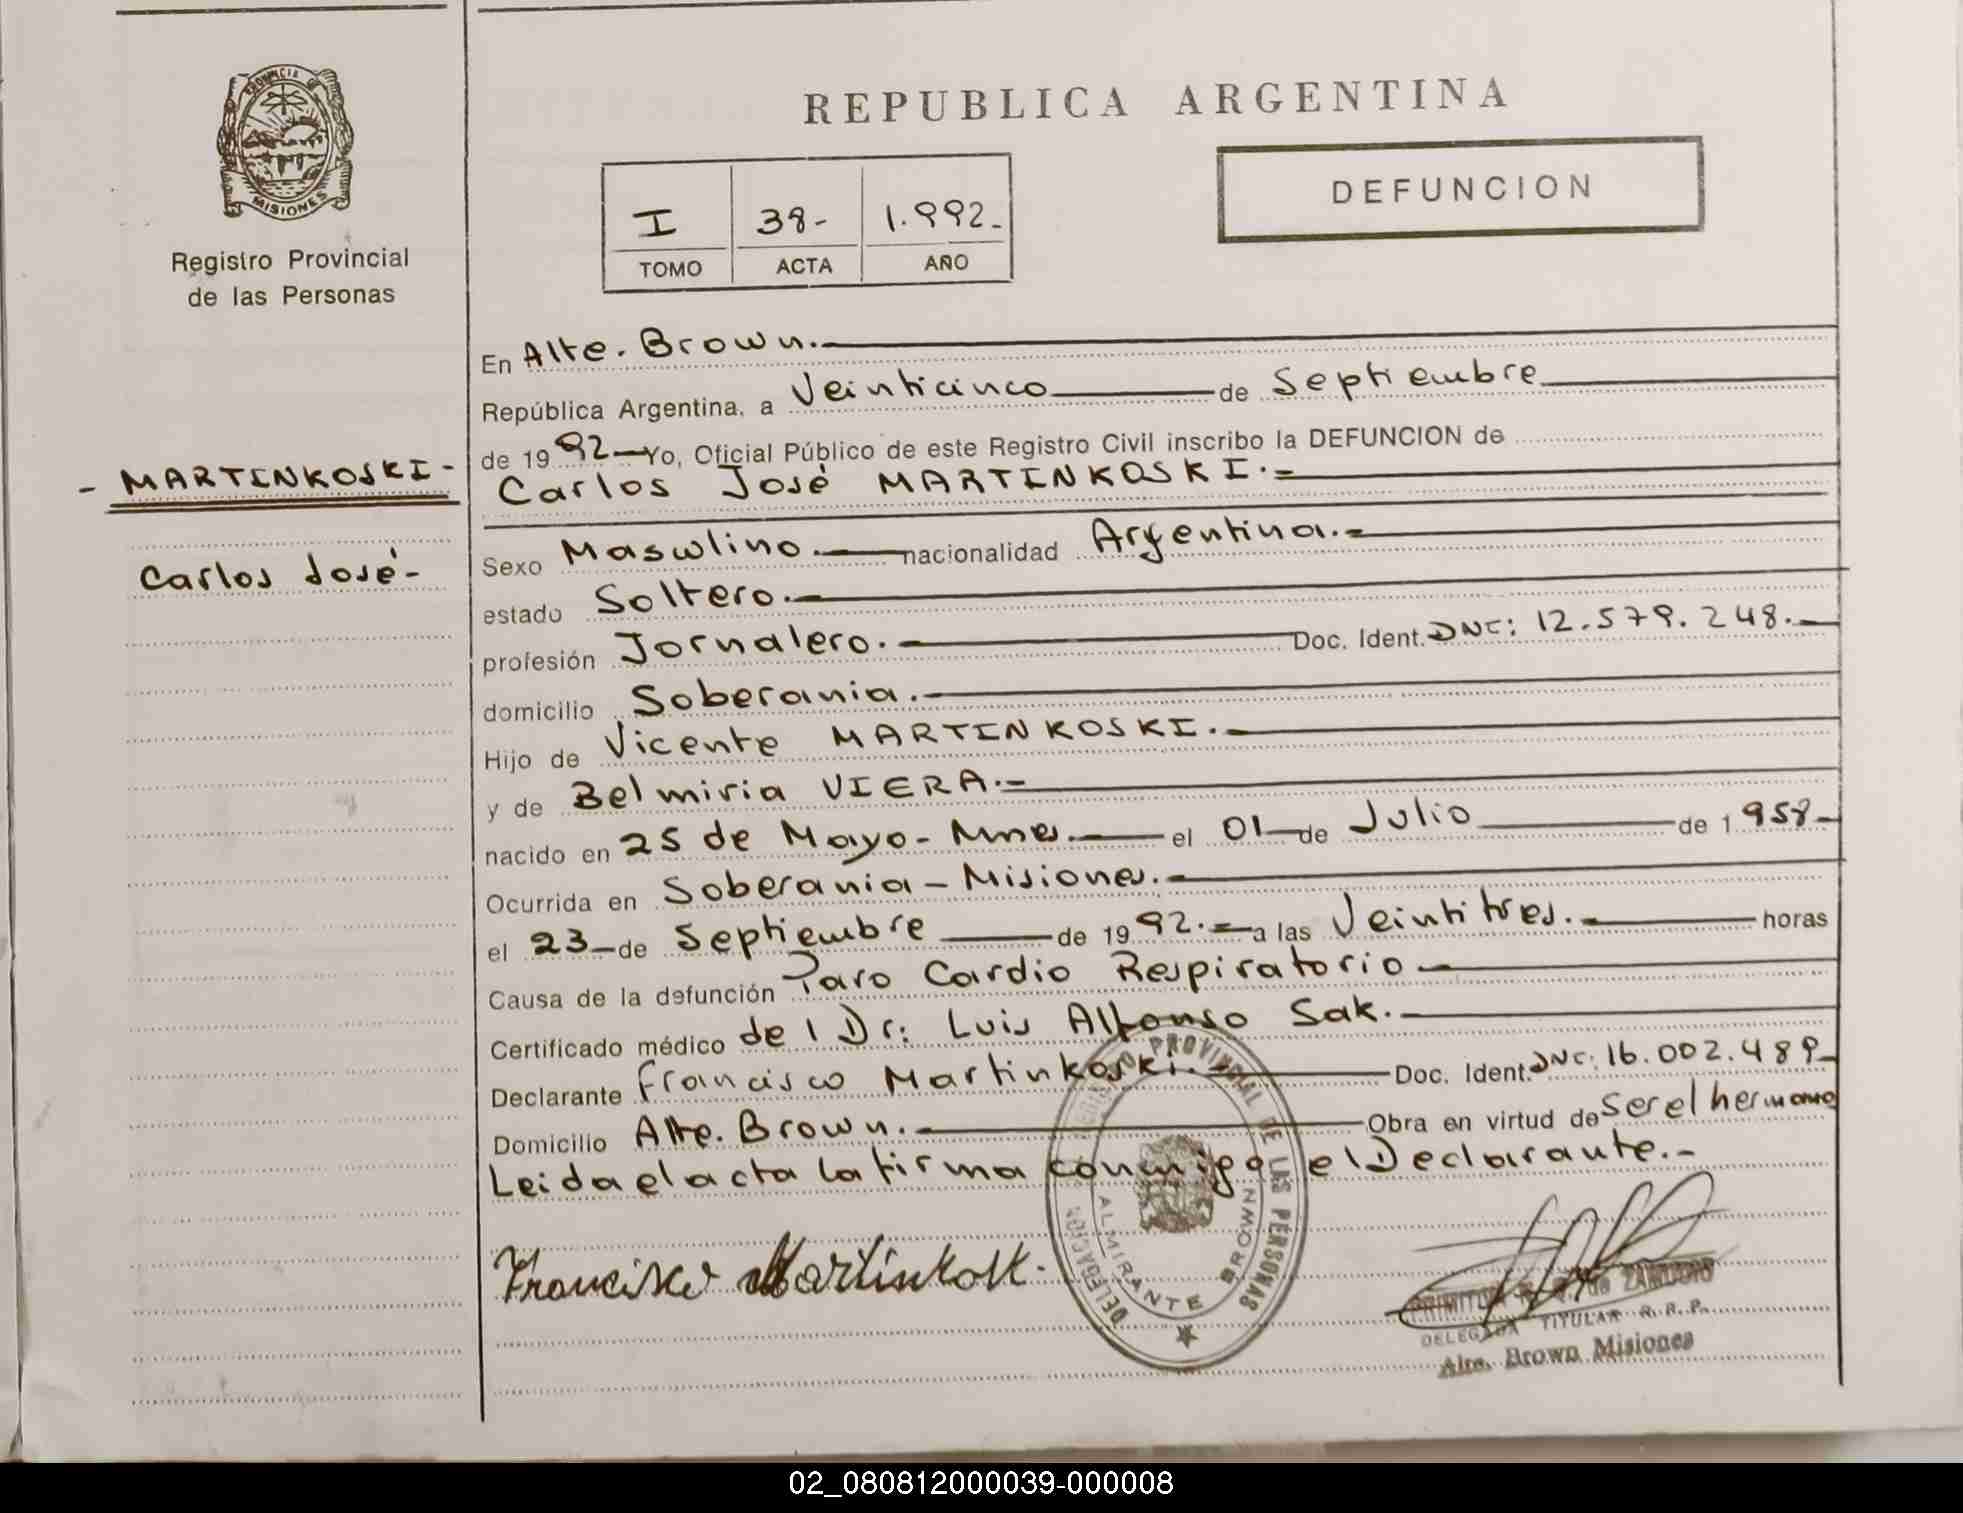 PROVINCIA DE
MISIONES
Registro Provincial
de las Personas
- MARTINKOSKI -
Carlos José-
REPUBLICA ARGENTINA
DEFUNCION
I 38- 1.992-
TOMO ACTA AÑO
En Alte. Brown.
República Argentina, a Veinticinco de Septiembre
de 1992 Yo, Oficial Público de este Registro Civil inscribo la DEFUNCION de
Carlos José MARTINKOSKI.=
Sexo Masculino. nacionalidad Argentina.=
estado Soltero.
profesión Jornalero. Doc. Ident. DNI: 12.579.248.
domicilio Soberania.
Hijo de Vicente MARTINKOSKI.
y de Belmiria VIERA.=
nacido en 25 de Mayo- Mnes. el 01 de Julio de 1958-
Ocurrida en Soberania - Misiones.
el 23 de Septiembre de 1992.= a las Veintitres. horas
Causa de la defunción Paro Cardio Respiratorio
Certificado médico del Dr: Luis Alfonso Sak.
Declarante Francisco Martinkoski. Doc. Ident. DNI: 16.002.489
Domicilio Alte. Brown. Obra en virtud de Ser el hermano
Leida el acta la firma conmigo el Declarante.-
Francisco Martinkoski.
REGISTRO PROVINCIAL DE LAS PERSONAS
DELEGACION
ALMIRANTE BROWN
PRIMITIVA de ZANUSSO
DELEGADA TITULAR R.R.P.
Alte. Brown Misiones
02_080812000039-000008